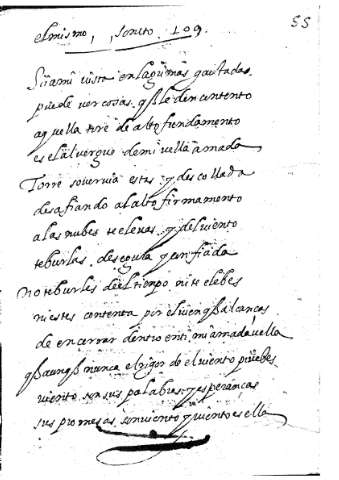 55
el mismo, soneto. 109.
Si a mi vista en lagrimas gastada.
puede ver cosas. q̃ le den contento
aquella tore de alto fundamento
es el alvergue de mi vella amada
Torre sovervia estas y descollada
desafiando al alto firmamento
a las nubes te elevas. y del viento
te burlas. de segura y confiada
no te burles del tiempo ni te eleves
ni estes contenta por el vien q̃ alcanças
de encerrar dentro en ti mi amada vella
q̃ aunq̃ nunca el rigor de el viento prueves
viento son sus palabras y esperanças
sus promesas. son viento y viento es ella